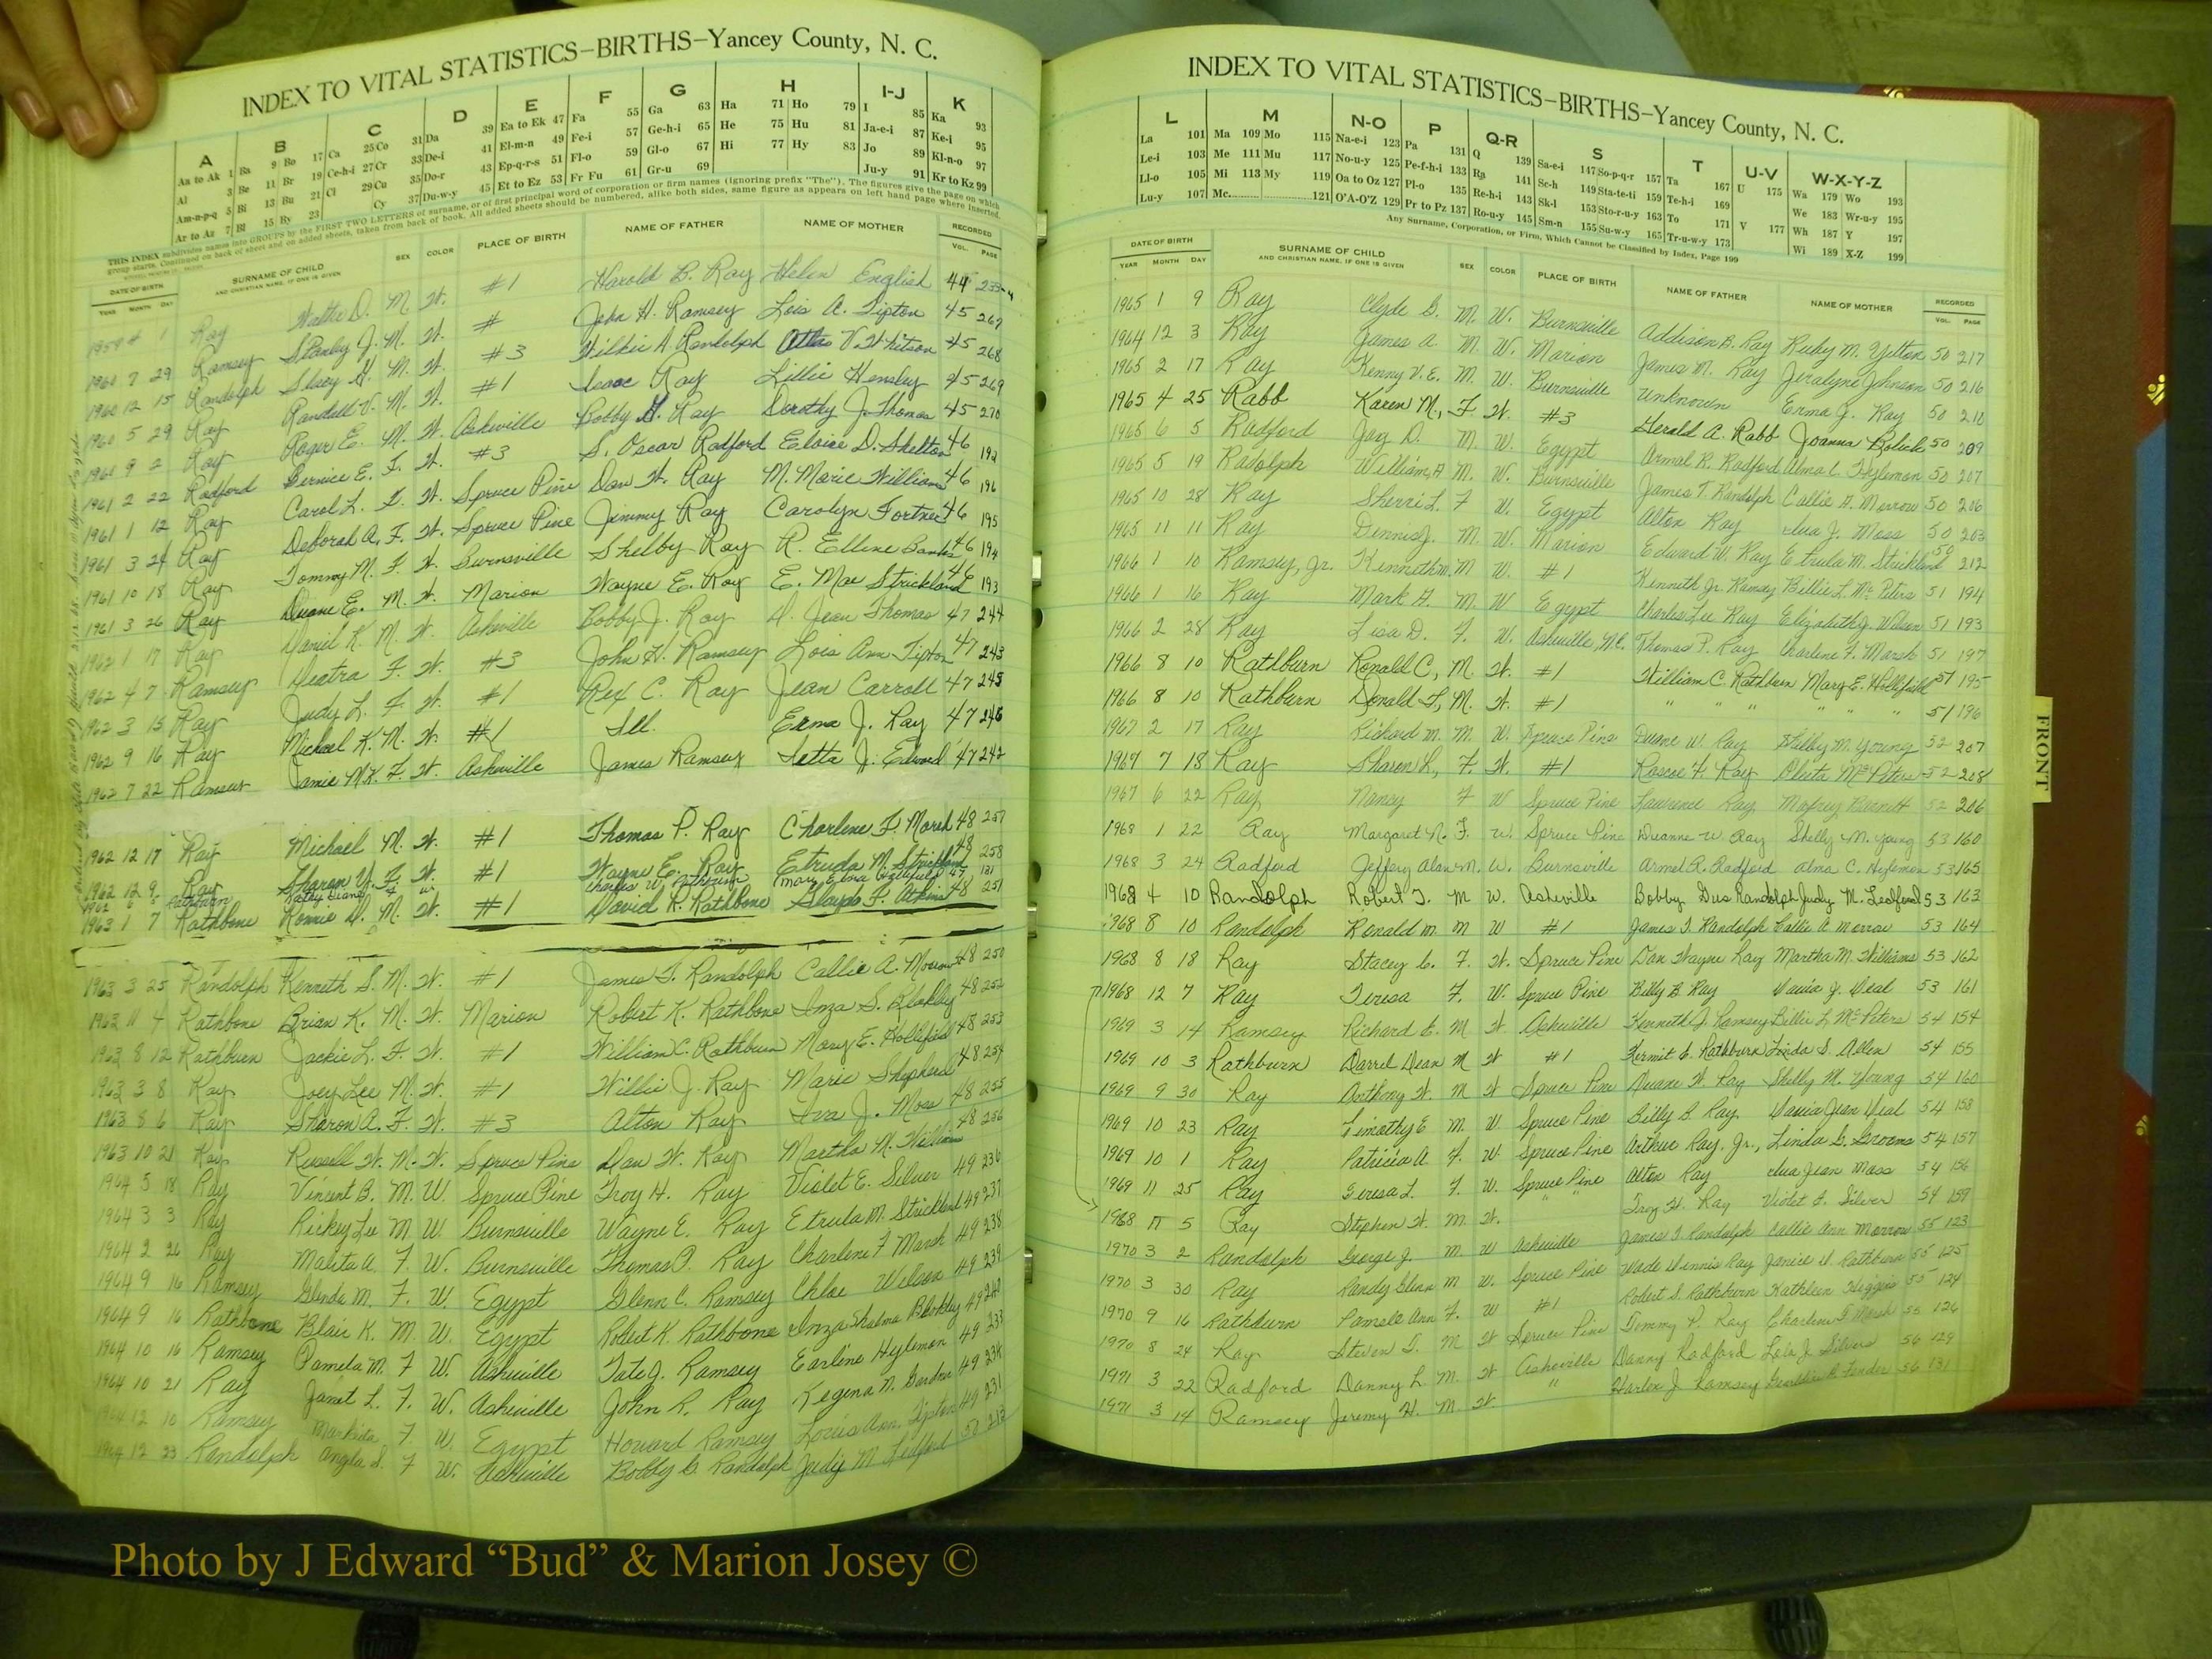 INDEX TO VITAL STATISTICS–BIRTHS–Yancey County, N. C.
A B C D E F G H I-J K
Aa to Ak 1 Ba 9 Bo 17 Ca 25 Co 31 Da 39 Ea to Ek 47 Fa 55 Ga 63 Ha 71 Ho 79 I 85 Ka 93
Al 3 Be 11 Br 19 Ce-h-i 27 Cr 33 De-i 41 El-m-n 49 Fe-i 57 Ge-h-i 65 He 75 Hu 81 Ja-e-i 87 Ke-i 95
Am-n-p-q 5 Bi 13 Bu 21 Cl 29 Cu 35 Do-r 43 Ep-q-r-s 51 Fl-o 59 Gl-o 67 Hi 77 Hy 83 Jo 89 Kl-n-o 97
Ar to Az 7 Bl 15 By 23 Cy 37 Du-w-y 45 Et to Ez 53 Fr Fu 61 Gr-u 69 Ju-y 91 Kr to Kz 99
THIS INDEX subdivides names into GROUPS by the FIRST TWO LETTERS of surname, or of first principal word of corporation or firm names (ignoring prefix "The"). The figures give the page on which
group starts. Continued on back of sheet and on added sheets, taken from back of book. All added sheets should be numbered, alike both sides, same figure as appears on left hand page where inserted.
DATE OF BIRTH SURNAME OF CHILD SEX COLOR PLACE OF BIRTH NAME OF FATHER NAME OF MOTHER RECORDED
YEAR MONTH DAY AND CHRISTIAN NAME, IF ONE IS GIVEN VOL. PAGE
1 Ray Walter D. M. W. #1 Harold B. Ray Helen English 44
7 29 Ramsey Stanley J. M. W. # John H. Ramsey Lois A. Tipton 45 267
1960 12 15 Randolph M. W. #3 Wilkie A. Randolph V. Whitson 45 268
1960 5 29 Ray Randall V. M. W. #1 Isaac Ray Lillie Hensley 45 269
9 2 Ray Roger E. M. W. Asheville Bobby G. Ray Dorothy J. Thomas 45 270
1961 2 22 Radford Bernice E. F. W. #3 S. Oscar Radford Eloise D. Shelton 46 192
1961 1 12 Ray Carol L. F. W. Spruce Pine Dan W. Ray M. Marie Williams 46 196
1961 3 24 Ray Deborah A. F. W. Spruce Pine Jimmy Ray Carolyn Fortner 46 195
1961 10 18 Ray Tommy M. F. W. Burnsville Shelby Ray R. Ellene Banks 46 194
1961 3 26 Ray Duane E. M. W. Marion Wayne E. Ray E. Mae Strickland 46 193
1962 1 17 Ray Daniel K. M. W. Asheville Bobby J. Ray D. Jean Thomas 47 244
1962 4 7 Ramsey Deatra F. W. #3 John H. Ramsey Lois Ann Tipton 47 243
1962 3 15 Ray Judy L. F. W. #1 Rex C. Ray Jean Carroll 47 245
1962 9 16 Ray Michael K. M. W. #1 Ill. Erma J. Ray 47 246
1962 7 22 Ramsey Jamie M.K. F. W. Asheville James Ramsey Letta J. 47 242
1962 12 17 Ray Michael M. W. #1 Thomas P. Ray Charlene F. Marsh 48 257
1962 12 9 Ray Sharon Y. F. W. #1 Wayne E. Ray Etrula M. Strickland 48 258
Rathburn Kathy Diane Charles W. Rathburn Mary Edna Hollifield 47
1963 1 7 Rathbone Ronnie D. M. W. #1 David R. Rathbone F. Atkins 48 251
1963 3 25 Randolph Kenneth S. M. W. #1 James T. Randolph Callie A. Morrow 48 250
1963 11 4 Rathbone Brian K. M. W. Marion Robert K. Rathbone Inza S. Blakley 48 252
1963 8 12 Rathburn Jackie L. F. W. #1 William C. Rathburn Mary E. Hollifield 48 253
1963 3 8 Ray Joey Lee M. W. #1 Willie J. Ray Marie Shepherd 48 254
1963 8 6 Ray Sharon A. F. W. #3 Alton Ray Iva J. Moss 48 255
1963 10 21 Ray Russell W. M. W. Spruce Pine Dan W. Ray Martha M. Williams 48 256
1964 5 18 Ray Vincent B. M. W. Spruce Pine Troy H. Ray Violet E. Silver 49 236
1964 3 3 Ray Rickey Lee M W. Burnsville Wayne E. Ray Etrula M. Strickland 49 237
1964 2 26 Ray Malita A. F. W. Burnsville Thomas P. Ray Charlene F Marsh 49 238
1964 9 16 Ramsey Glenda M. F. W. Egypt Glenn C. Ramsey Chloe Wilson 49 239
1964 9 16 Rathbone Blair K. M. W. Egypt Robert K. Rathbone Inza Thelma Blakley 49 240
1964 10 16 Ramsey Pamela M. F W. Asheville Tate J. Ramsey Earline Hylemon 49 233
1964 10 21 Ray Janet L. F. W. Asheville John R. Ray Regena N. 49 234
1964 12 10 Ramsey F. W. Egypt Howard Ramsey Louis Ann Tipton 49 231
1964 12 23 Randolph Angela S. F W. Asheville Bobby G. Randolph Judy M Ledford 50 213
INDEX TO VITAL STATISTICS–BIRTHS–Yancey County, N. C.
L M N-O P Q-R S T U-V W-X-Y-Z
La 101 Ma 109 Mo 115 Na-e-i 123 Pa 131 Q 139 Sa-e-i 147 So-p-q-r 157 Ta 167 U 175 Wa 179 Wo 193
Le-i 103 Me 111 Mu 117 No-u-y 125 Pe-f-h-i 133 Ra 141 Sc-h 149 Sta-te-ti 159 Te-h-i 169 We 183 Wr-u-y 195
Ll-o 105 Mi 113 My 119 Oa to Oz 127 Pl-o 135 Re-h-i 143 Sk-l 153 Sto-r-u-y 163 To 171 V 177 Wh 187 Y 197
Lu-y 107 Mc 121 O'A-O'Z 129 Pr to Pz 137 Ro-u-y 145 Sm-n 155 Su-w-y 165 Tr-u-w-y 173 Wi 189 X-Z 199
Any Surname, Corporation, or Firm, Which Cannot be Classified by Index, Page 199
DATE OF BIRTH SURNAME OF CHILD SEX COLOR PLACE OF BIRTH NAME OF FATHER NAME OF MOTHER RECORDED
YEAR MONTH DAY AND CHRISTIAN NAME, IF ONE IS GIVEN VOL. PAGE
1965 1 9 Ray Clyde G. M. W. Burnsville Addison B. Ray Ruby M. Yelton 50 217
1964 12 3 Ray James A. M W. Marion James M. Ray Jeralyne Johnson 50 216
1965 2 17 Ray Kenny V. E. M. W. Burnsville Unknown Erma J. Ray 50 210
1965 4 25 Rabb Karen M., F. W. #3 Gerald A. Rabb Joanna Bolick 50 209
1965 6 5 Radford Jay D. M. W. Egypt Armal R. Radford Alma C. Hylemon 50 207
1965 5 19 Radolph William A M. W. Burnsville James T. Randolph Callie A. Morrow 50 206
1965 10 28 Ray Sherri L. F W. Egypt Alton Ray Iva J. Moss 50 203
1965 11 11 Ray Dennis J. M. W. Marion Edward W. Ray Etrula M. Strickland 50 212
1966 1 10 Ramsey, Jr. Kenneth M. W. #1 Kenneth Jr. Ramsey Billie L. McPeters 51 194
1966 1 16 Ray Mark A. M. W Egypt Charles Lee Ray Elizabeth J. Wilson 51 193
1966 2 28 Ray Lisa D. F. W. Asheville, N.C. Thomas P. Ray Charlene F. Marsh 51 197
1966 8 10 Rathburn Ronald C., M. W. #1 William C. Rathburn Mary E. Hollifield 51 195
1966 8 10 Rathburn Donald F., M. W. #1 " " " " " " 51 196
1967 2 17 Ray Richard M. M. W. Spruce Pine Duane W. Ray Shelby M. Young 52 207
1967 7 18 Ray Sharon L., F. W. #1 Roscoe F. Ray McPeters 52 208
1967 6 22 Ray Nancy F W Spruce Pine Lawrence Ray 52 206
1968 1 22 Ray Margaret N. F. W. Spruce Pine Duanne W. Ray Shelly M. Young 53 160
1968 3 24 Radford Jeffery Alan M. W. Burnsville Armel R. Radford Alma C. Hylemon 53 165
1968 4 10 Randolph Robert T. M W. Asheville Bobby Gus Randolph Judy M. Ledford 53 163
1968 8 10 Randolph Ronald M M W #1 James T. Randolph Callie A Morrow 53 164
1968 8 18 Ray Stacey C. F. W. Spruce Pine Dan Wayne Ray Martha M. Williams 53 162
1968 12 7 Ray Teresa F. W. Spruce Pine Billy B Ray J. Deal 53 161
1969 3 14 Ramsey Richard E. M W. Asheville Kenneth J. Ramsey Billie L McPeters 54 154
1969 10 3 Rathburn Darrel Dean M W #1 Kermit C. Rathburn Linda S. Allen 54 155
1969 9 30 Ray Anthony W. M W Spruce Pine Duane W. Ray Shelly M. Young 54 160
1969 10 23 Ray Timothy E M. W. Spruce Pine Billy B Ray Jean Deal 54 158
1969 10 1 Ray Patricia A F. W. Spruce Pine Arthur Ray, Jr., Linda G. Grooms 54 157
1969 11 25 Ray Teresa L. F. W. Spruce Pine Alton Ray Iva Jean Moss 54 156
1968 11 5 Ray Stephen W. M. W. " " Troy H. Ray Violet E. Silver 54 159
1970 3 2 Randolph George J. M. W Asheville James T. Randolph Callie Ann Morrow 55 123
1970 3 30 Ray Randy Glenn M W. Spruce Pine Wade Dennis Ray Janice D. Rathburn 55 125
1970 9 16 Rathburn Pamela Ann F. W #1 Robert S. Rathburn Kathleen Higgins 55 124
1970 8 24 Ray Steven T. M W Spruce Pine Tommy P. Ray Charlene F. Marsh 55 126
1971 3 22 Radford Danny L. M. W Asheville Danny Radford Lola J. Silvers 56 129
1971 3 14 Ramsey Jeremy H. M. W. " Harlon J. Ramsey 56 131
FRONT
Photo by J Edward “Bud” & Marion Josey ©